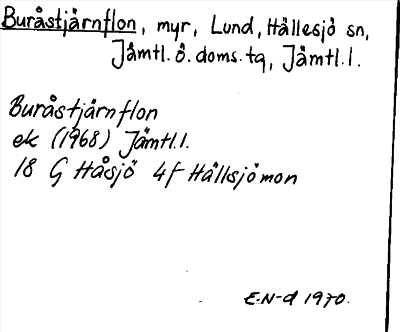 Buråstjärnflon, myr, Lund, Hällesjö sn,
Jämtl. ö. doms. tq, Jämtl. l.
Buråstjärnflon
ek (1968) Jämtl. l.
18 G Håsjö 4f Hällsjömon
E.N-d 1970.